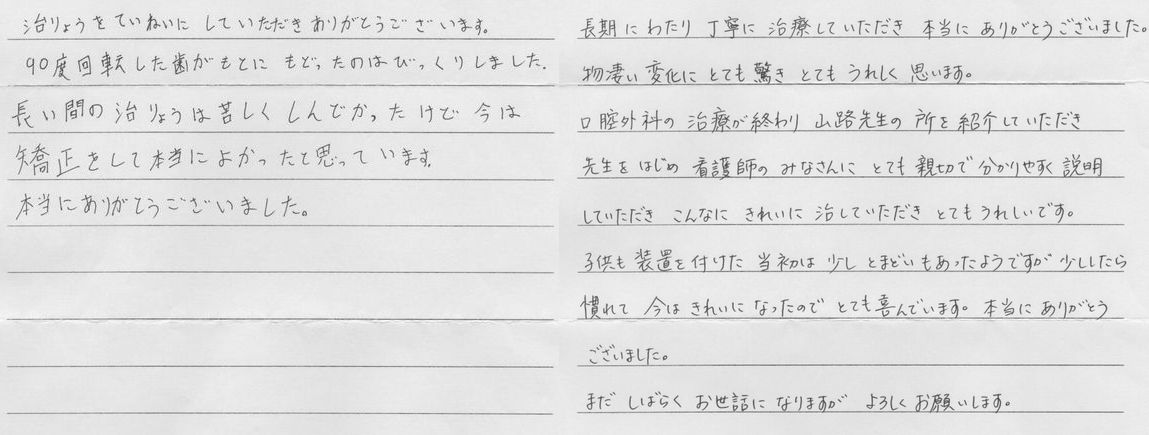 治りょうをていねいにしていただきありがとうございます。
90度回転した歯がもとにもどったのはびっくりしました。
長い間の治りょうは苦しくしんでかったけど今は
矯正をして本当によかったと思っています。
本当にありがとうございました。
長期にわたり丁寧に治療していただき本当にありがとうございました。
物凄い変化にとても驚きとてもうれしく思います。
口腔外科の治療が終わり山路先生の所を紹介していただき
先生をはじめ看護師のみなさんにとても親切で分かりやすく説明
していただきこんなにきれいに治していただきとてもうれしいです。
子供も装置を付けた当初は少しとまどいもあったようですが少ししたら
慣れて今はきれいになったのでとても喜んでいます。本当にありがとう
ございました。
まだしばらくお世話になりますがよろしくお願いします。